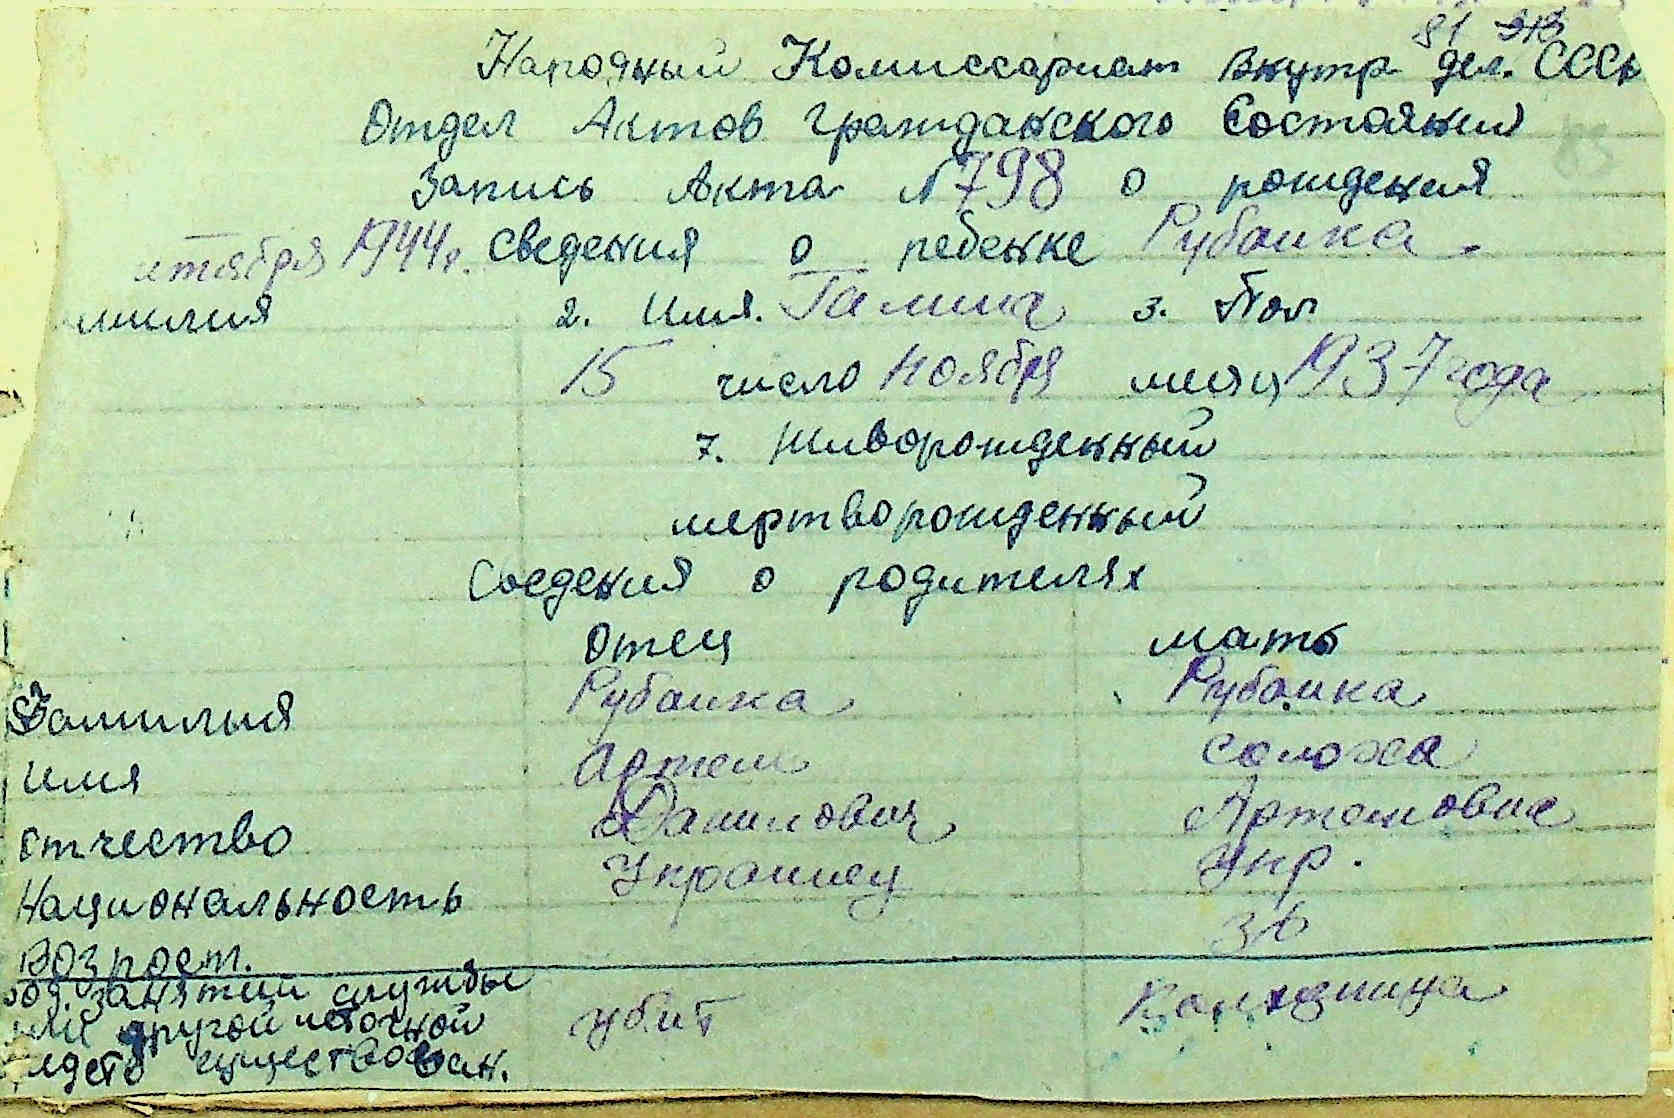 81 313
Народный Комиссариат Внутр дел. СССР
Отдел Актов Гражданского Состояния
Запись Акта № 798 о рождения
ктября 1944г. Сведения о ребенке Рубанка
милия 2. Имя. Галина 3. Пол
15 число Ноября месяц 1937 года
7. Живорожденный
мертворожденный
Сведения о родителях
Отец мать
Фамилия Рубанка Рубанка
Имя Артем Солоха
Отчество Данилович Артемовна
Национальность Украинец Укр.
Возраст. 36
род. занятий службы
или другой источной убит Колхозница
средств существован.